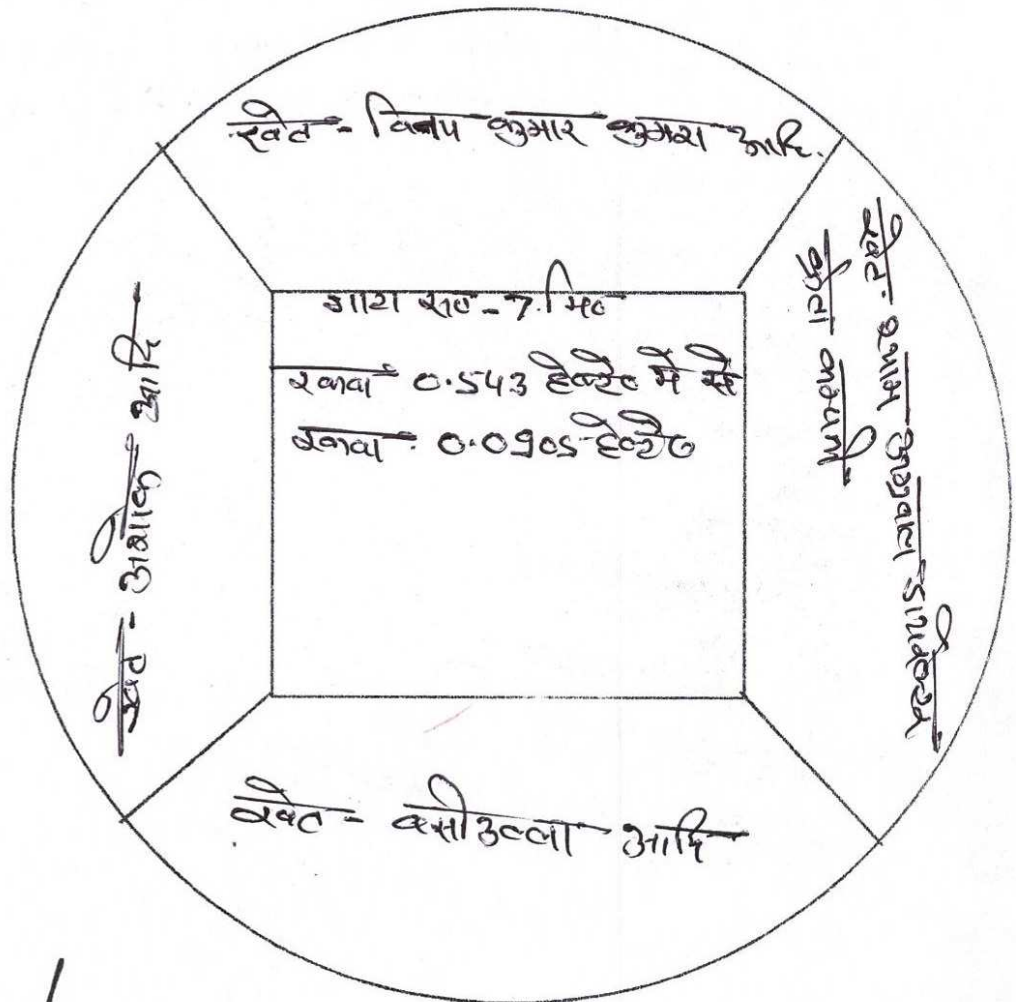 खेत - विनय कुमार कुमरा आदि.
गाटा सं० - 7 मि०
रकवा 0.543 हेक्टे० में से
रकवा 0.0905 हेक्टे०
खेत - अशोक आदि
खेत - श्याम जी
क्रेता कम्पनी
खेत - वसीउल्ला आदि